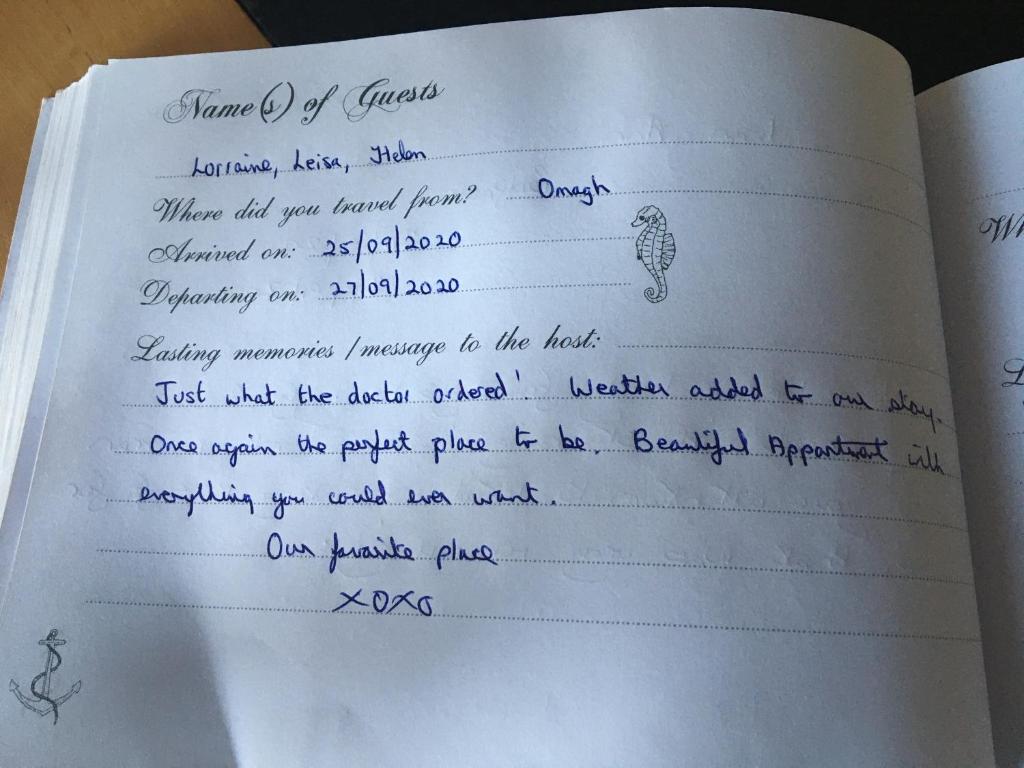 Name(s) of Guests
Lorraine, Leisa, Helen
Where did you travel from? Omagh
Arrived on: 25/09/2020
Departing on: 27/09/2020
Lasting memories / message to the host:
Just what the doctor ordered! Weather added to our stay.
Once again the perfect place to be. Beautiful Appartment with
everything you could ever want.
Our favarite place
XOXO
Wh
L